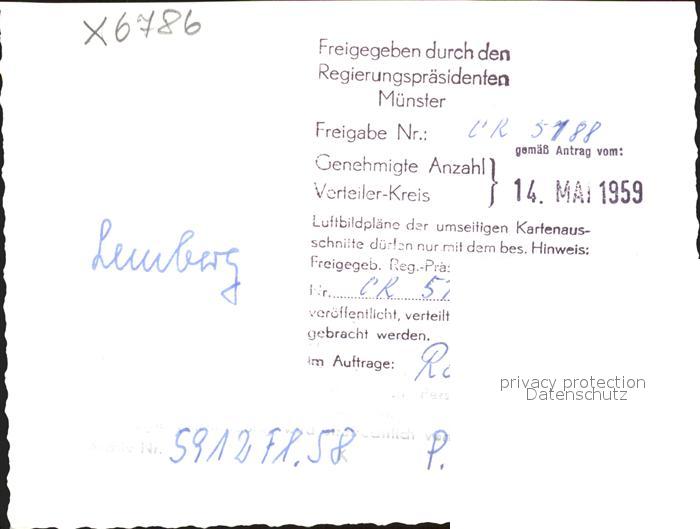 X6786
Freigegeben durch den
Regierungspräsidenten
Münster
Freigabe Nr.: CR 5188
gemäß Antrag vom:
Genehmigte Anzahl }
Verteiler-Kreis
14. MAI 1959
Luftbildpläne der umseitigen Kartenaus-
schnitte dürfen nur mit dem bes. Hinweis:
Freigegeb. Reg.-Prä
Nr. CR 51
veröffentlicht, verteilt
gebracht werden.
Im Auftrage:
Lemberg
privacy protection
Datenschutz
5912 Fl. 58 P.